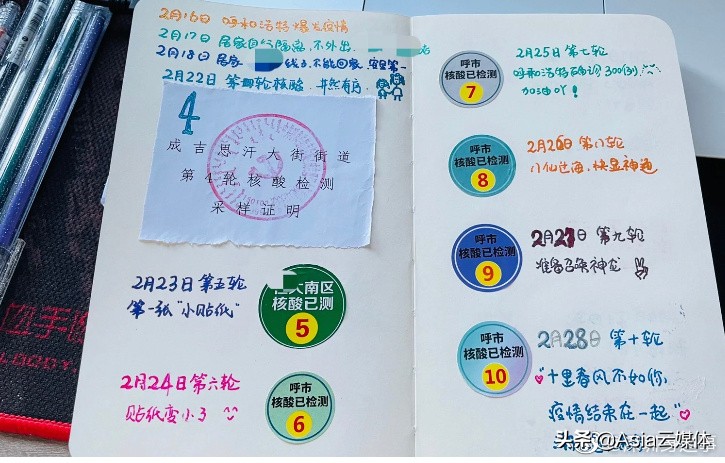 2月16日 呼和浩特爆发疫情
2月17日 居家自行隔离,不外出,
2月18日 居家 线上,不能回家,
2月22日 第四轮核酸,井然有序,
4
成吉思汗大街街道
第4轮核酸检测
采样证明
2月23日 第五轮
第一张“小贴纸”
大南区
核酸已测
5
2月24日 第六轮
贴纸变小了
呼市
核酸已检测
6
呼市
核酸已检测
7
2月25日 第七轮
呼和浩特 300例
加油吖!
呼市
核酸已检测
8
2月26日 第八轮
八仙过海,快显神通
呼市
核酸已检测
9
2月27日 第九轮
准备召唤神龙
呼市
核酸已检测
10
2月28日 第十轮
“十里春风不如你
疫情结束在一起”
头条@Asia云媒体